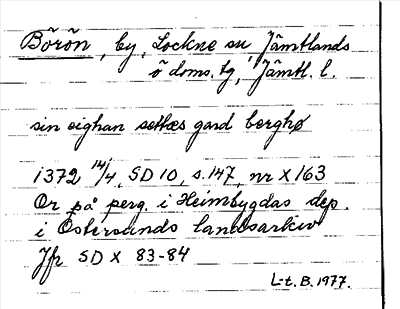 Börön, by, Lockne sn, Jämtlands
ö doms. tg, Jämtl. l.
sin eighan sættæs gard berghø
1372 14/4, SD 10, s. 147, nr X 163
Or på perg. i Heimbygdas dep.
i Östersunds landsarkiv
Jfr SD X 83-84
L-t. B. 1977.